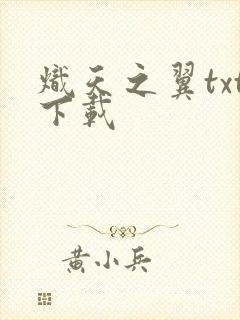 熾天之翼txt
下載
黄小兵